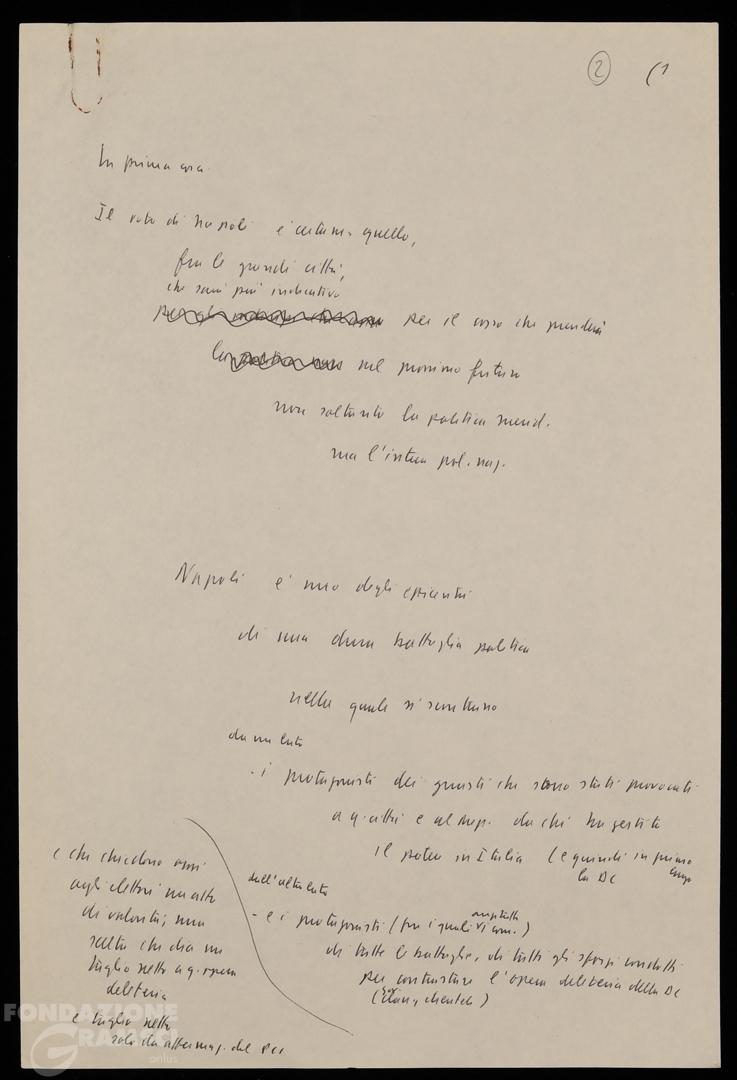 2 (1
In primo caso.
Il voto di Napoli è certam. quello,
fra le grandi città,
che sarà più indicativo
per il corso che prenderà
nel prossimo futuro
non soltanto la politica merid.
ma l'intera pol. naz.
Napoli è uno degli epicentri
di una dura battaglia politica
nella quale si scontrano
da un lato
- i protagonisti dei guasti che sono stati provocati
a q. città e al Mezz. da chi ha gestito
il potere in Italia (e quindi in primo
luogo
la DC
dall'altro lato
- e i protagonisti (fra i quali vi sono.)
anzitutto
di tutte le battaglie, di tutti gli sforzi condotti
per contrastare l'opera deleteria della DC
(clientele)
e che chiedono oggi
agli elettori un atto
di volontà; una
scelta che dia un
taglio netto a q. opera
deleteria
e taglio netto
solo da affermaz. del PCI
FONDAZIONE
GRAMSCI
onlus